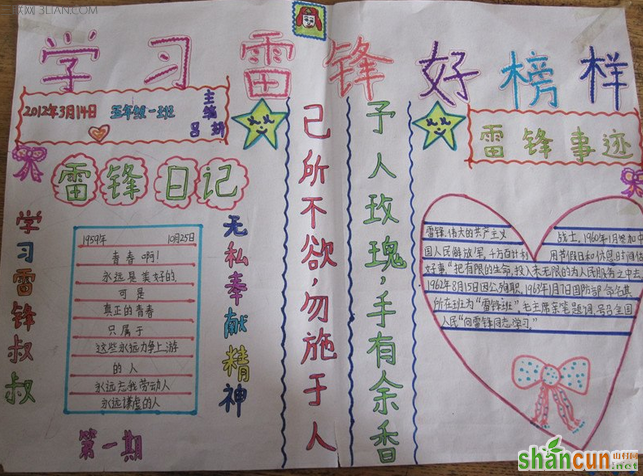 学习雷锋好榜样
2012年3月14日 五年级一班
主编
吕
雷锋日记
学习雷锋叔叔
1959年 10月25日
青春啊!
永远是美好的,
可是
真正的青春
只属于
这些永远力争上游
的人
永远忘我劳动人
永远谦虚的人
无私奉献精神
第一期
己所不欲,勿施于人
予人玫瑰,手有余香
雷锋事迹
雷锋,伟大的共产主义 战士,1960年1月参加中
国人民解放军,千方百计利 用节假日和休息时间做
好事"把有限的生命,投入无限的为人民服务之中去。
1962年8月15日因公殉职,1963年1月7日国防部命名其
所在班为"雷锋班",毛主席亲笔题词,号召全国
人民"向雷锋同志学习。"
3LIAN.COM
shancun
山村网
.net